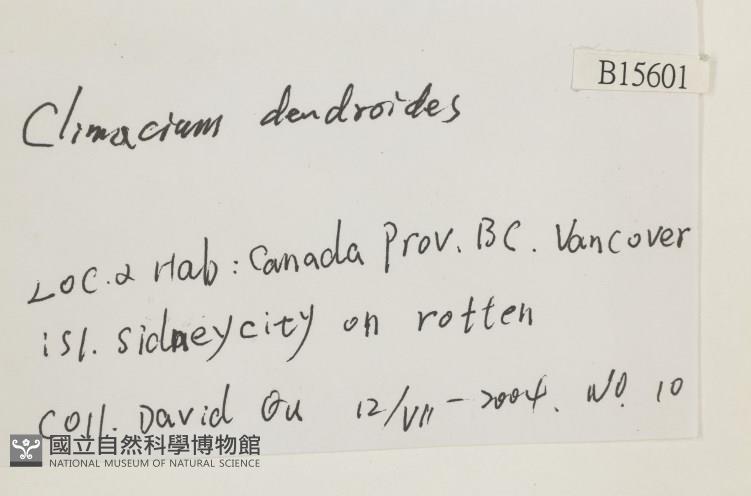 B15601
Climacium dendroides
Loc. & Hab: Canada Prov. BC. Vancover
isl. Sidney city on rotten
Coll. David Qu 12/VII-2004. NO. 10
國立自然科學博物館
NATIONAL MUSEUM OF NATURAL SCIENCE